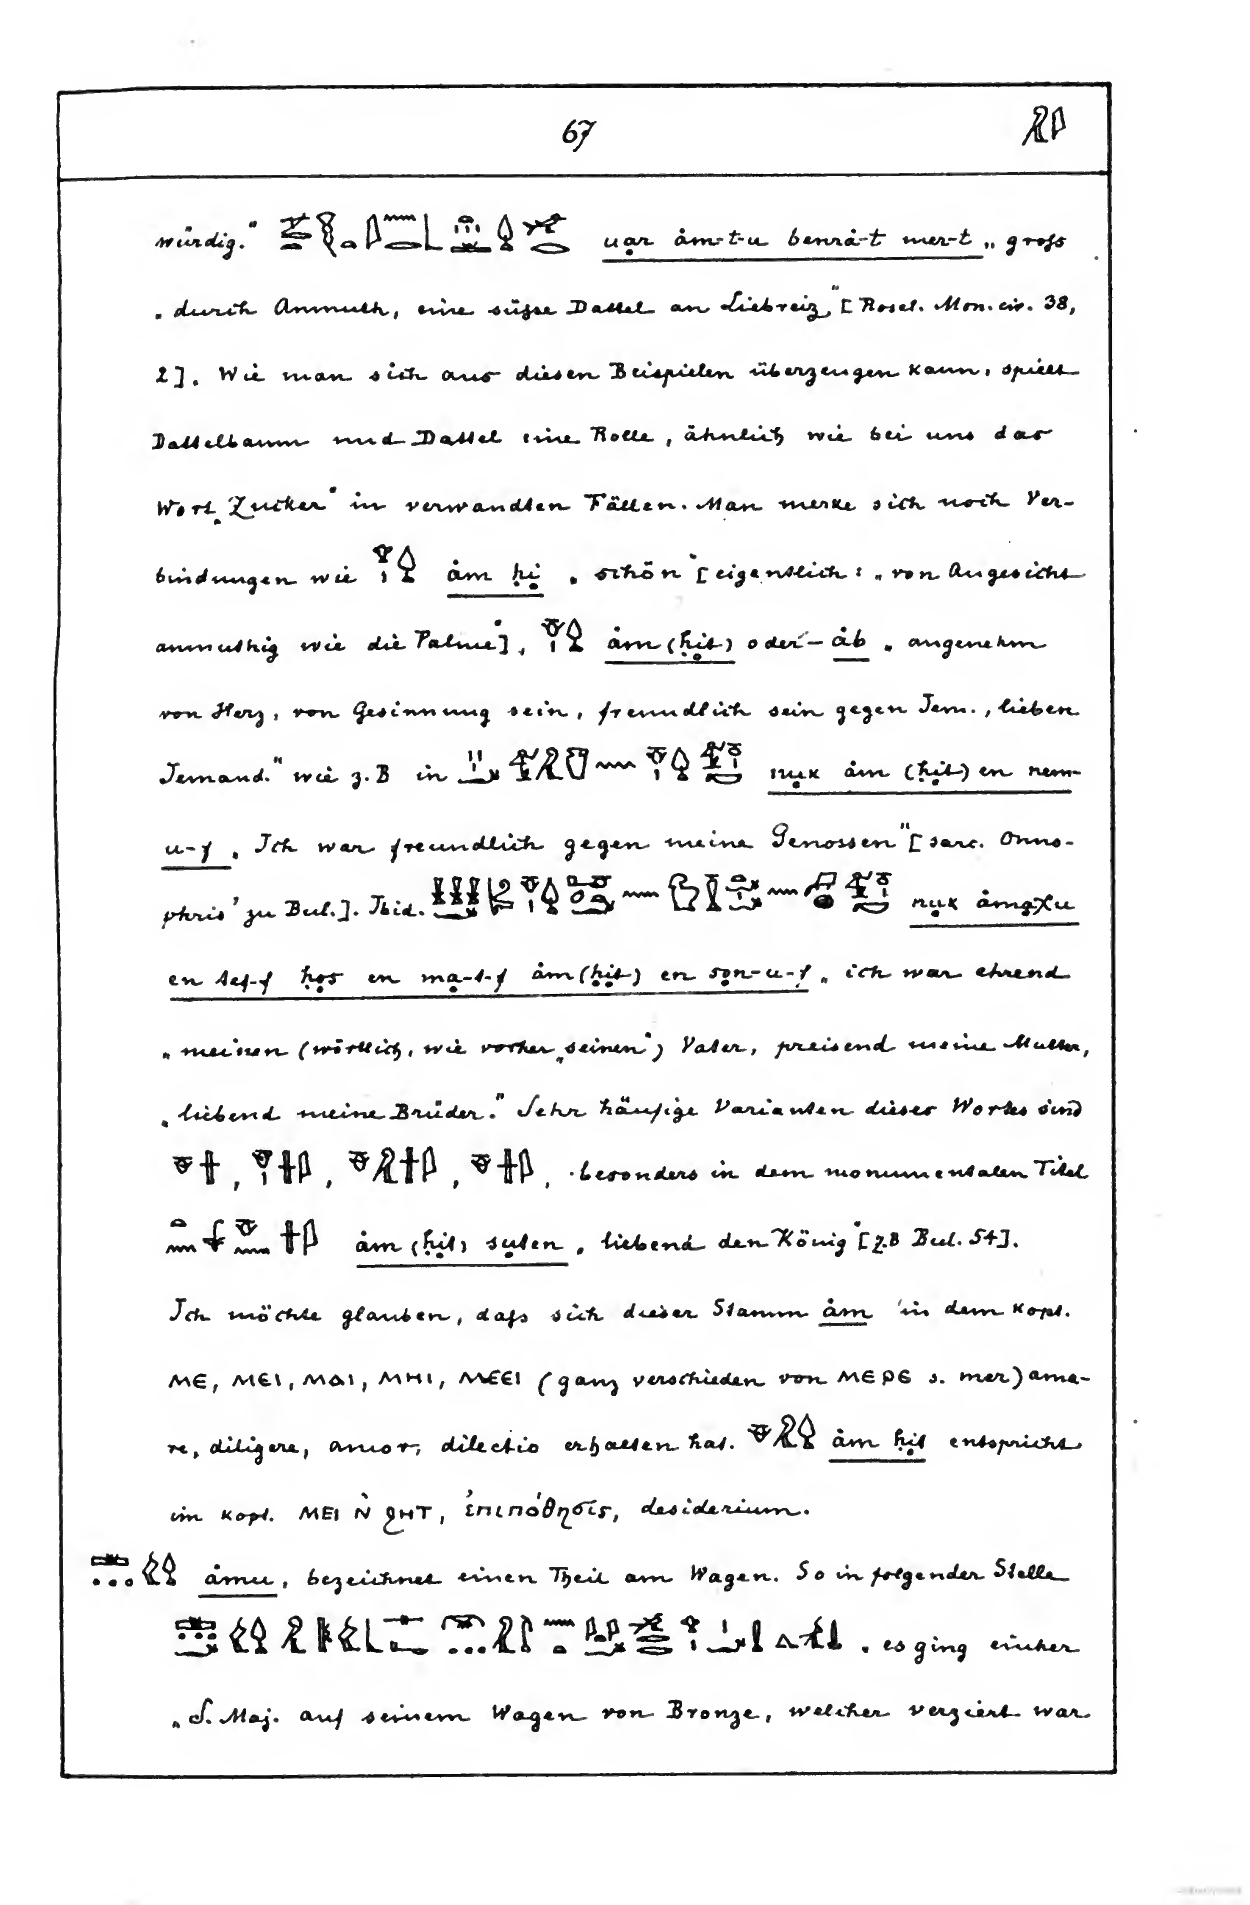 67
würdig." uar åm-t-u benrå-t mer-t „ gross
„ durch Anmuth, eine süsse Dattel an Liebreiz" [Rosel. Mon. civ. 38,
2]. Wie man sich aus diesen Beispielen überzeugen kann, spielt
Dattelbaum und Dattel eine Rolle, ähnlich wie bei uns das
Wort „Zucker" in verwandten Fällen. Man merke sich noch Ver-
bindungen wie åm ḥi „ schön" [eigentlich: „ von Angesicht
anmuthig wie die Palme"], åm (ḥit) oder – åb „ angenehm
von Herz, von Gesinnung sein, freundlich sein gegen Jem., lieben
Jemand." wie z. B in nuk åm (ḥit) en nem-
u-f „ Ich war freundlich gegen meine Genossen" [sarc. Onno-
phris' zu Bul.]. Ibid. nuk åmaχu
en tef-f ḥos en ma-t-f åm (ḥit) en son-u-f „ ich war ehrend
„ meinen (wörtlich, wie vorher „seinen") Vater, preisend meine Mutter,
„ liebend meine Brüder." Sehr häufige Varianten dieses Wortes sind
, , , , besonders in dem monumentalen Titel
åm (ḥit) suten „ liebend den König" [z.B Bul. 54].
Ich möchte glauben, dass sich dieser Stamm åm in dem kopt.
ⲘⲈ, ⲘⲈⲒ, ⲘⲀⲒ, ⲘⲎⲒ, ⲘⲈⲈⲒ (ganz verschieden von ⲘⲈⲢⲈ s. mer) ama-
re, diligere, amor, dilectio erhalten hat. åm ḥit entspricht
im kopt. ⲘⲈⲒ Ⲛ̀ ϨⲎⲦ, ἐπιπόθησις, desiderium.
åmu, bezeichnet einen Theil am Wagen. So in folgender Stelle
„ es ging einher
„ S. Maj. auf seinem Wagen von Bronze, welcher verziert war